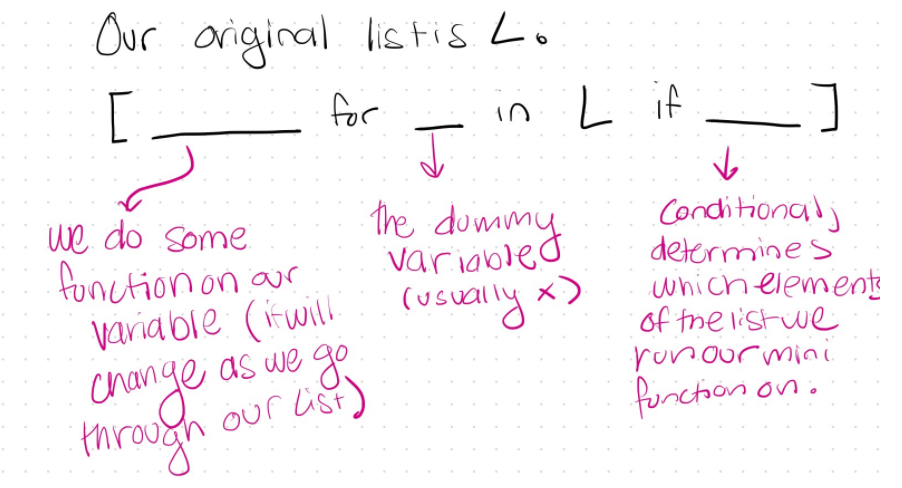 Our original list is L.
[ _____ for __ in L if ____ ]
we do some
function on our
variable (it will
change as we go
through our list)
the dummy
variable
(usually x)
Conditional,
determines
which elements
of the list we
run our mini
function on.